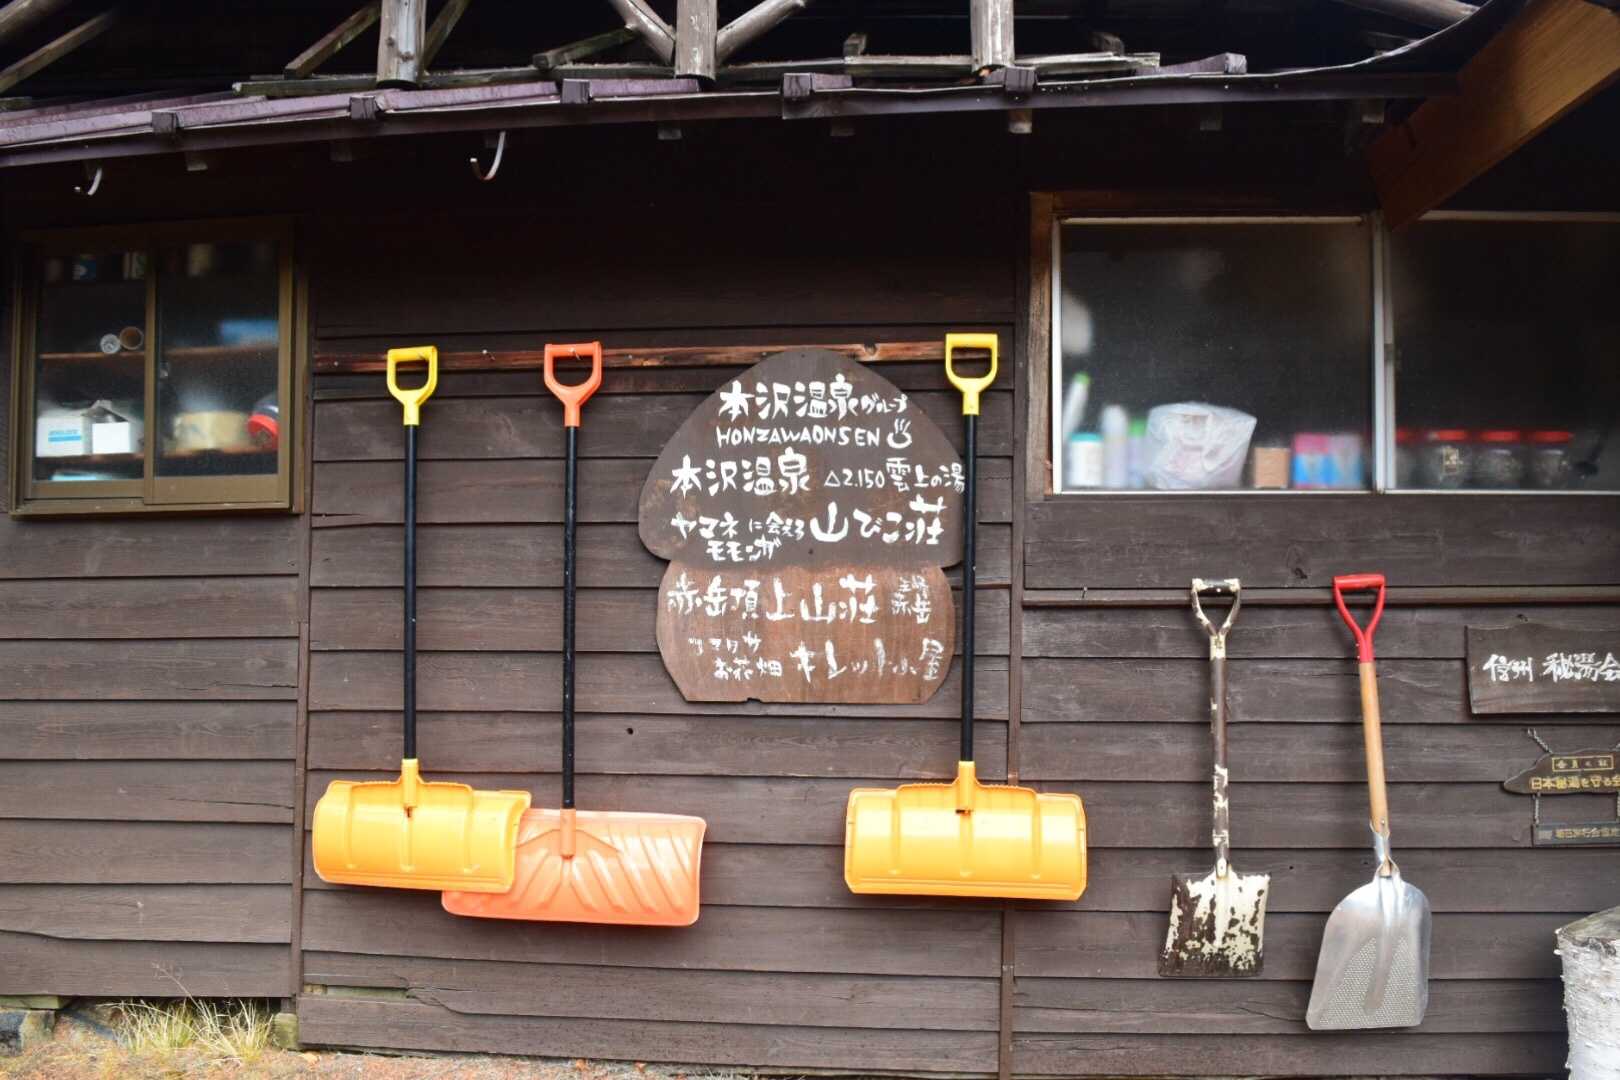 本沢温泉グループ
HONZAWAONSEN♨
本沢温泉 △2.150雲上の湯
ヤマネ モモンガ に会える 山びこ荘
赤岳頂上山荘 主峰 赤岳
ツクモグサ お花畑 キレット小屋
信州 秘湯会
日本秘湯を守る会